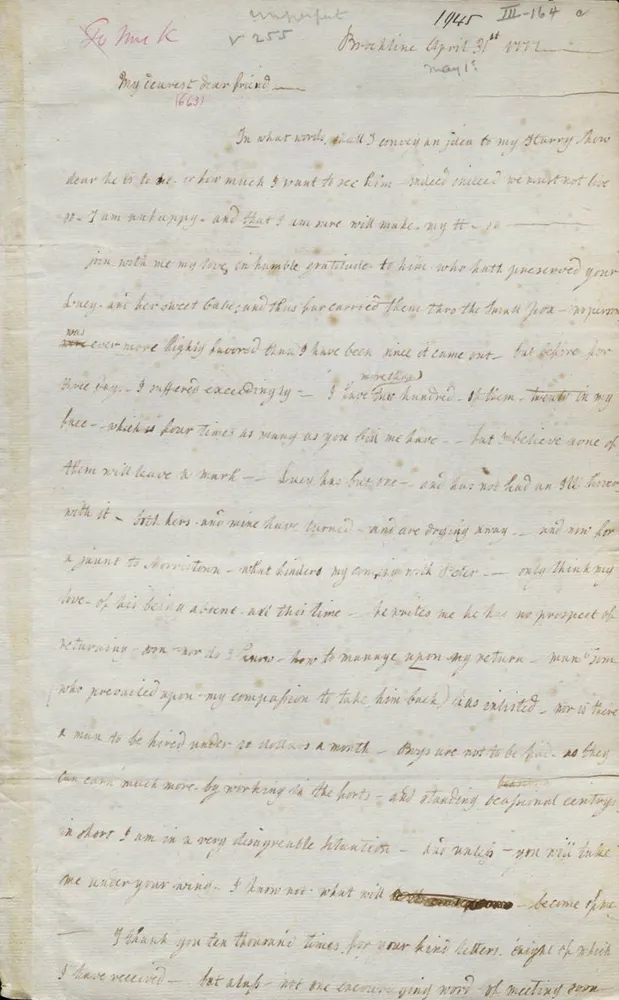 imperfect
1945 III-164
To Mrs K
v 255
Brookline April 31st 1777
May 1st
My dearest dear friend
(663)
In what words, shall I convey an idea to my Harry how
dear he is to me - or how much I want to see him - indeed indeed we must not live
so - I am unhappy - and that I am sure will make my H - so
join with me my love, in humble gratitude to him who hath preserved your
Lucy - and her sweet babe, and thus far carried them thro the small pox - no person
was ever more highly favored than I have been since it came out - but before for
three days - I suffered exceedingly - I have more than two hundred - of them - twenty in my
face - which is four times as many as you bid me have - but I believe none of
them will leave a mark - Lucy has but one - and has not had an Ill hour
with it - both hers and mine have turned - and are drying away - and now for
a jaunt to Morristown - what hinders my coming with Peter - only think my
love - of his being absent all this time - he writes me he has no prospect of
returning soon - nor do I know - how to manage upon my return -
who prevailed upon my compassion to take him back) has inlisted - nor is there
a man to be hired under 20 dollars a month - Boys are not to be had - as they
can earn much more by working in the forts - and standing occasional centrys
in short I am in a very disagreable situation - and unless - you will take
me under your wing - I know not what will become of me
I thank you ten thousand times for your kind letters, eight of which
I have received - but alass - not one encouraging word of meeting soon